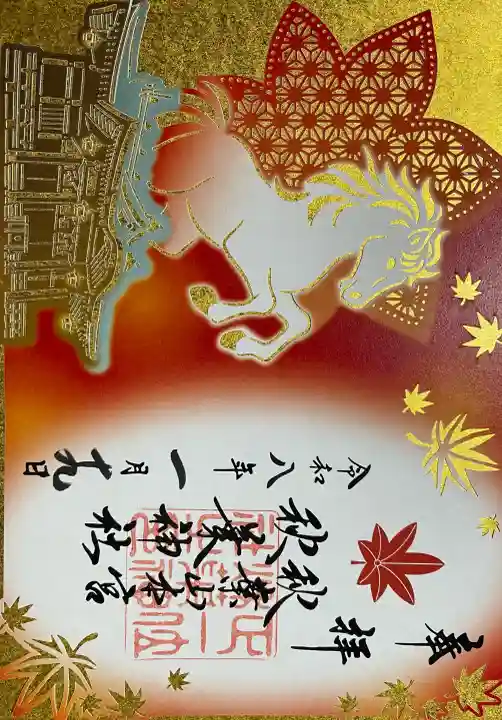 奉拝
秋葉山本宮
秋葉神社
令和八年
一月十九日